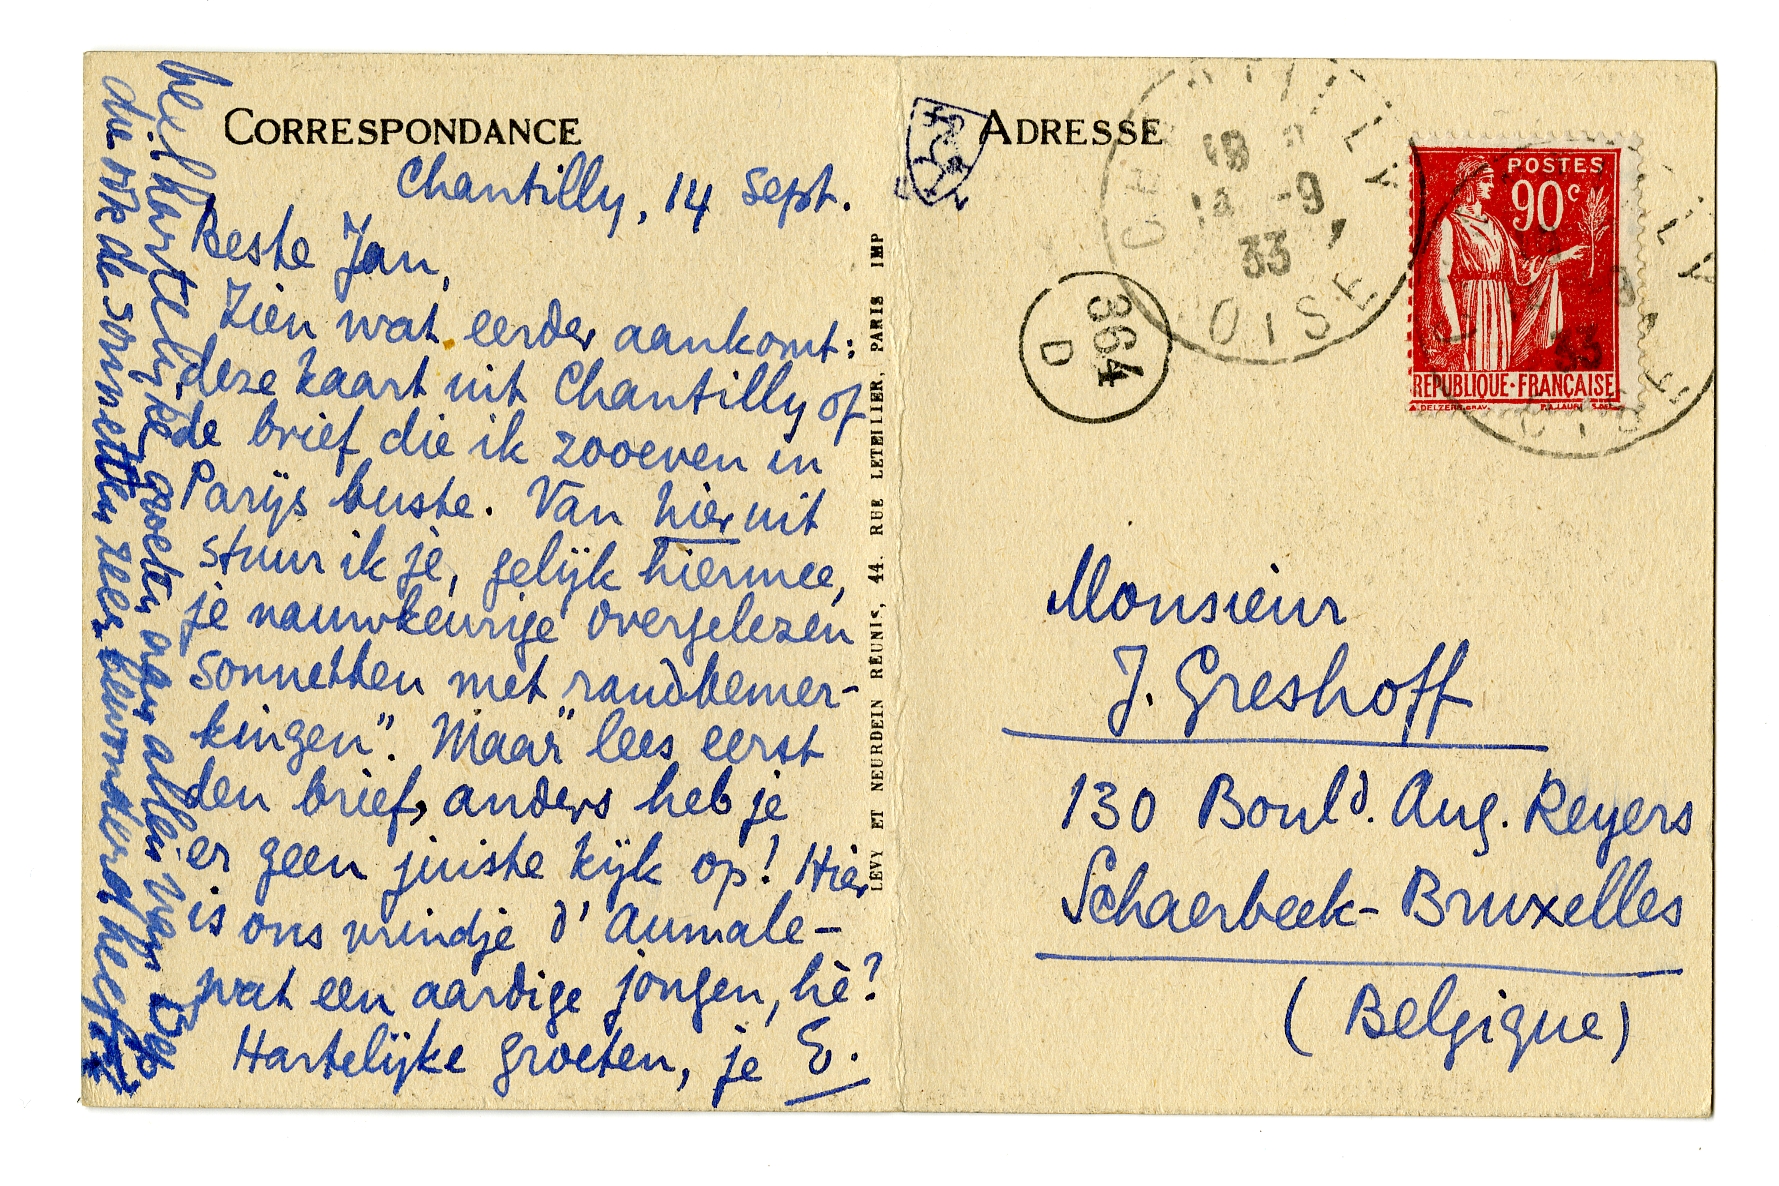 CORRESPONDANCE
Chantilly, 14 Sept.
Beste Jan,
Zien wat eerder aankomt:
deze kaart uit Chantilly of
de brief die ik zooeven in
Parijs buste. Van hier uit
stuur ik je, gelijk hiermee,
je nauwkeurige overgelezen
sonnetten met randbemer-
kingen". Maar" lees eerst
den brief, anders heb je
er geen juiste kijk op! Hier
is ons vrindje d'Aumale-
wat een aardige jongen, hè?
Hartelijke groeten, je E.
heel hartelijke groeten, ook allen van Bep
die ook de sonnetten zeer bewonderd heeft
LEVY ET NEURDEIN RÉUNIS, 44. RUE LETELLIER, PARIS IMP
ADRESSE
18
-9
33
OISE
364
D
POSTES
90c
REPUBLIQUE·FRANÇAISE
33
Monsieur
J. Greshoff
130 Bould. Aug. Reyers
Schaerbeek-Bruxelles
(Belgique)